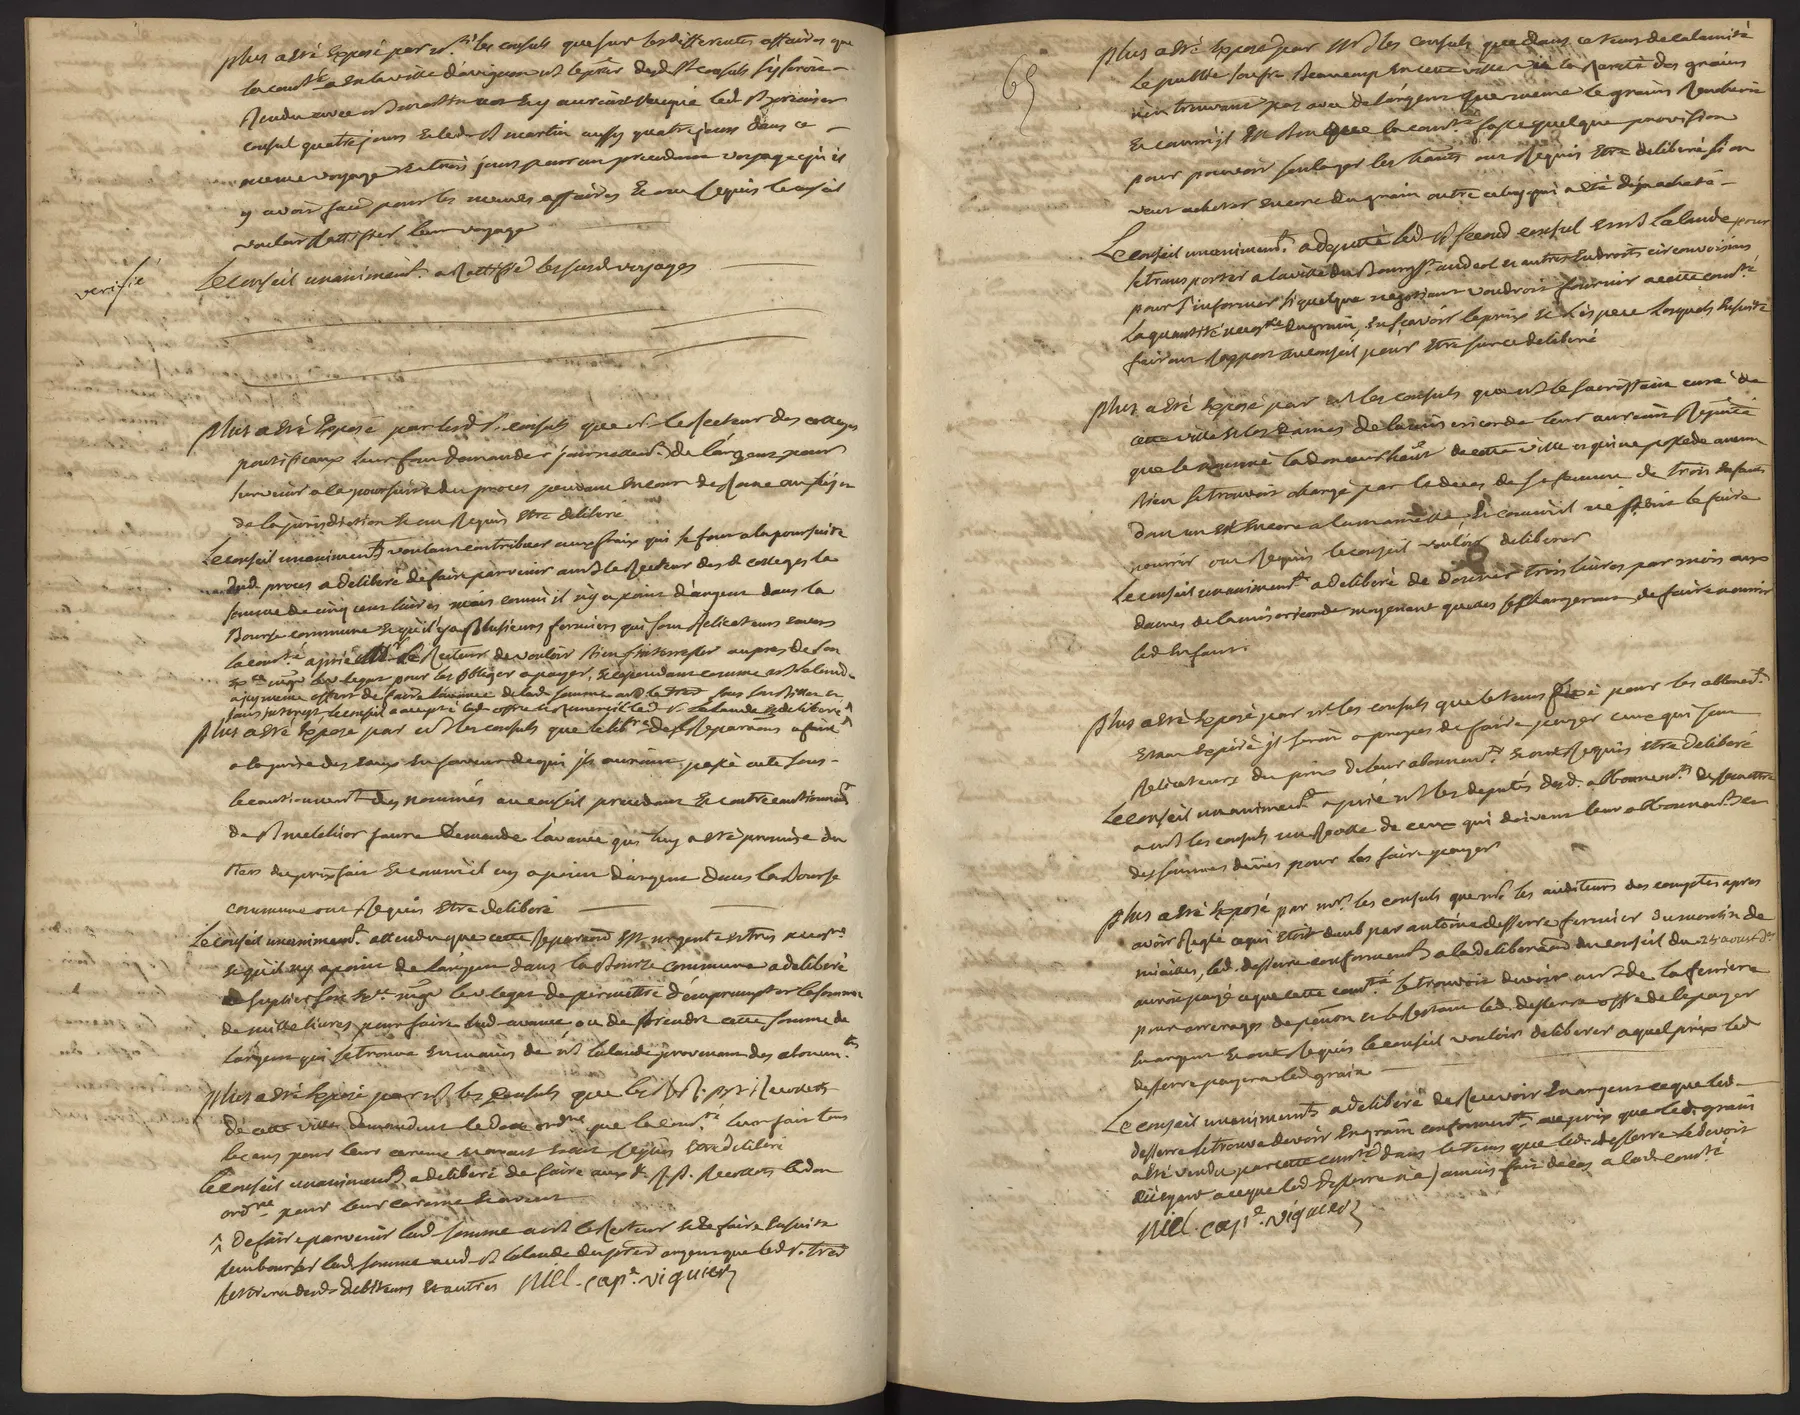 plus a esté exposé par mrs les consuls que sur les differentes affaires que
la comté a en la ville d'avignon mr le prer desd. srs consuls s'y seroit
rendu avec mr martin
consul quatre jours et led. sr martin aussy quatre jours dans ce
meme voyage et trois jours pour un precedant voyage qu'il
y avoit fait pour les memes affaires et ont requis le conseil
vouloir rattifier leur voyage
verifié
Le conseil unanimemt. a rattiffié lesusd. voyages
plus a esté exposé par lesd. srs. consuls que mr. le Recteur des colleges
pontificaux leur fait demander journellemt. de l'argent pour
survenir a la poursuite du proces pendant en cour de Rome au sujet
de la jurisdiction et ont requis estre deliberé
Le conseil unanimemt. voulant contribuer aux fraix qui se font a la poursuite
dud. proces a deliberé de faire parvenir a mr le Recteur desd. colleges la
somme de cinq cent livres mais comm'il n'y a point d'argent dans la
Bourse commune et qu'il y a plusieurs fermiers qui sont relicateurs envers
la comté a prié mr. le Recteur de vouloir bien s'interesser aupres de son
exce. mgr le v. legat pour les obliger a payer, et cependant comme mr lalande
a luy meme offert de faire l'avance de lad. somme
sans interest, le conseil a accepté lad. offre et remercié led. sr. Lalande et deliberé ^
plus a esté exposé par mrs les consuls que le bail des Reparaons a faire
a la prise des eaux en faveur de qui ils auroient passé acte sous
le cautionnemt. des nommés au conseil precedant et contrecautionnemt.
de sr melchior faure demande l'avance qui luy a esté promise du
tiers du prixfait et comm'il n'y a point d'argent dans la Bourse
commune ont requis estre deliberé
Le conseil unanimemt. attendu que cette reparaon est urgente et tres necessre.
et qu'il n'y a point de l'argent dans la Bourse commune a deliberé
de suplier son exce. mgr le v. legat de permettre d'emprumpter la somme
de mille livres pour faire lad. avance ou de prendre cette somme de
l'argent qui se trouve en mains de mr lalande provenant des abonnemts.
plus a esté exposé par mrs les consuls que les RR. pp. Recollets
de cette ville demandent le don ordre. que la comté. leur fait tous
les ans pour leur careme et avent et ont requis estre deliberé
Le conseil unanimemt. a deliberé de faire auxd. R.P. Recollets led. don
ordre. pour leur careme et avent
^ de faire parvenir lad. somme a mr le Recteur et de faire ensuite
rembourser lad. somme aud. sr lalande du prer argent que led. sr. tres
retirera desd. debiteurs et autres Niel. cape. viguier
65
plus a esté exposé par mrs les consuls que dans ce tems de calamité
le public soufre beaucoup en cette ville vû la rareté des grains
n'en trouvant pas avec de l'argent que meme le grain rencherit
et comm'il est bon que la comté. fasse quelque provision
pour pouvoir soulager les habits. ont requis estre deliberé si on
veut acheter encore du grain outre celuy qui a esté deja acheté
Le conseil unanimemt. a deputé led. sr second consul et mr Lalande pour
se transporter a la ville du Bourg st. andeol et autres endroits circonvoisins
pour s'informer si quelque negotiant voudroit fournir a cette comté
la quantité necesre. du grain, en sçavoir le prix et l'espece lesquels ensuite
fairont rapport au conseil pour estre sur ce deliberé
plus a esté exposé par mrs les consuls que mr le sacristain curé de
cette ville et les Dames de la misericorde leur auroient representé
que le nommé ladouceur habit. de cette ville et qui ne possede aucun
bien se trouvoit chargé par le deces de sa femme de trois enfants
dont un est encore a la mamelle et comm'il n'est en etat de le faire
nourrir ont requis le conseil vouloir deliberer
Le conseil unanimemt. a deliberé de donner trois livres par mois aux
dames de la misericorde moyenant quoy elles se chargeront de faire nourrir
led. enfant.
plus a esté exposé par mrs. les consuls que le tems fixé pour les abonnemts.
etant expiré il seroit a propos de faire payer ceux qui sont
reliquateurs du prix de leur abonnemt. et ont requis estre deliberé
Le conseil unanimemt. a prié mrs les deputés desd. abbonnemts. de remettre
a mrs les consuls un Rolle de ceux qui doivent leur abbonnemt. et
des sommes deües pour les faire payer
plus a esté exposé par mrs. les consuls que mrs. les auditeurs des comptes apres
avoir reglé ce qui etoit deub par antoine desserre fermier du moulin de
miailles, led. desserre conformemt. a la deliberaon du conseil du 25 aoust der.
auroit payé ce que cette comté. se trouvoit devoir a mr de la ferriere
pour arrerages de pension et le restant led. desserre offre de le payer
en argent et ont requis le conseil vouloir deliberer a quel prix led.
desserre payera led. grain
Le conseil unanimemt. a deliberé de recevoir en argent ce que led.
desserre se trouve devoir en grain conformemt. au prix que led. grain
a esté vendu par cette comté dans le tems que led. desserre le devoit
Niel. cape. viguier